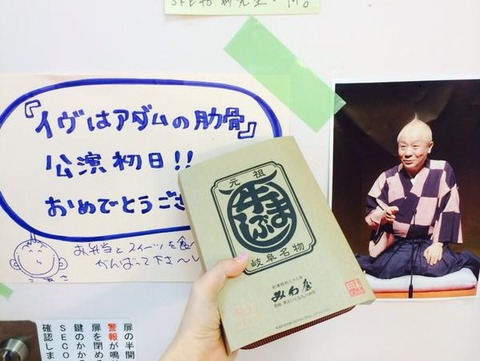 『イヴはアダムの肋骨』
公演初日!!
おめでとうござ
お弁当とスイーツを食べ
がんばって下さ〜い
元祖
牛まぶし
岐阜名物
みわ屋
扉の半開
警報が鳴
扉を閉め
鍵のかか
SECO
確認しま